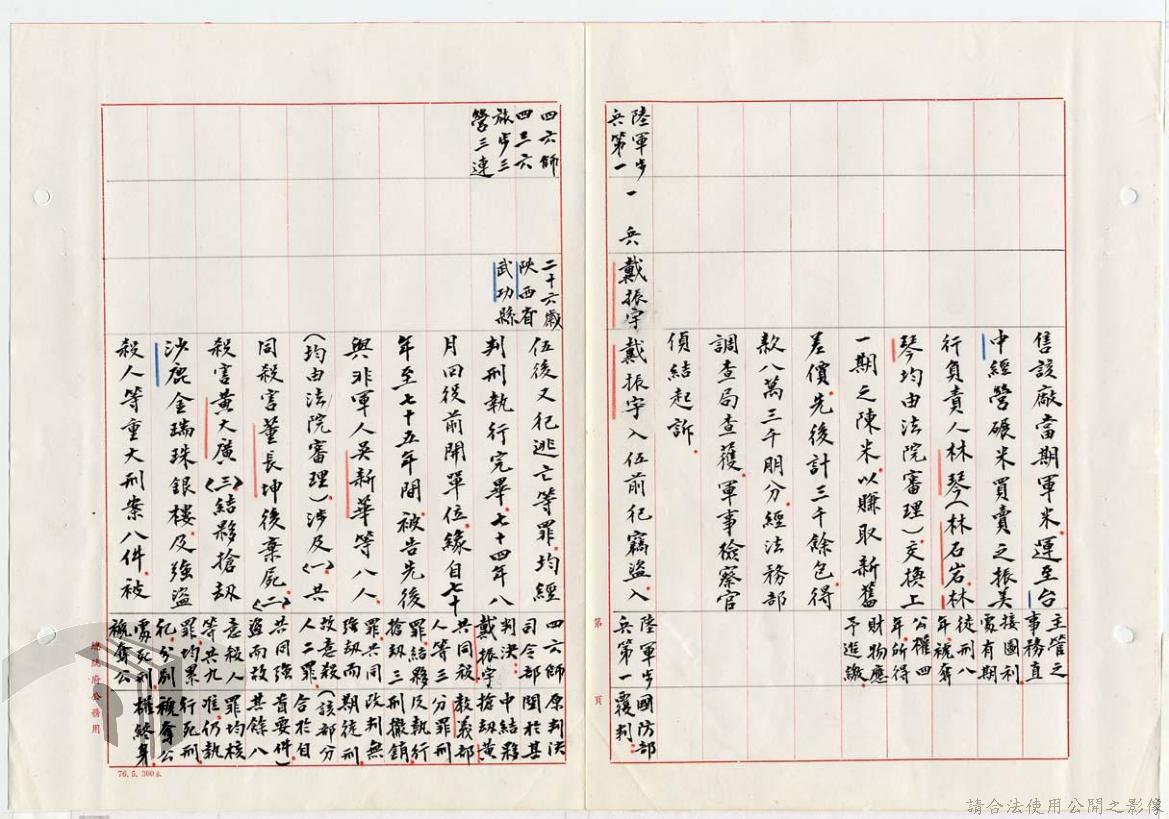 售該廠當期軍米，運至台
中經營碾米買賣之振美
行負責人林琴（林石岩、林
琴均由法院審理）交換上
一期之陳米，以賺取新舊
差價，先後計三千餘包，得
款八萬三千朋分。經法務部
調查局查獲，軍事檢察官
偵結起訴。
主管之
事務直
接圖利
處有期
徒刑八
年，褫奪
公權四
年。所得
財物應
予追繳。
陸軍步
兵第一
一兵
戴振宇
戴振宇入伍前犯竊盜，入
陸軍步
兵第一
國防部
覆判：
第 頁
四六師
四三六
旅步三
營三連
二十六歲
陝西省
武功縣
伍後又犯逃亡等罪，均經
判刑執行完畢。七十四年八
月回役前開單位，緣自七十
年至七十五年間，被告先後
與非軍人吳新華等八人
（均由法院審理）涉及㈠共
同殺害董長坤後棄屍。㈡
殺害黃大廣㈢結夥搶劫
沙鹿金瑞珠銀樓，及強盜
殺人等重大刑案八件，被
四六師
司令部
判決：
戴振宇
共同殺
人等三
罪結夥
搶劫三
罪，共同
強劫而
故意殺
人二罪，
共同強
盜而故
意殺人
等共九
罪均累
犯，分別
處死刑，
褫奪公
原判決
關於其
中結夥
搶劫黃
教義部
分罪刑
及執行
刑撤銷
改判無
期徒刑
（該部分
合於自
首要件）
其餘八
罪均核
准，仍執
行死刑
褫奪公
權終身。
總統府公務用
76. 5. 300本
請合法使用公開之影像